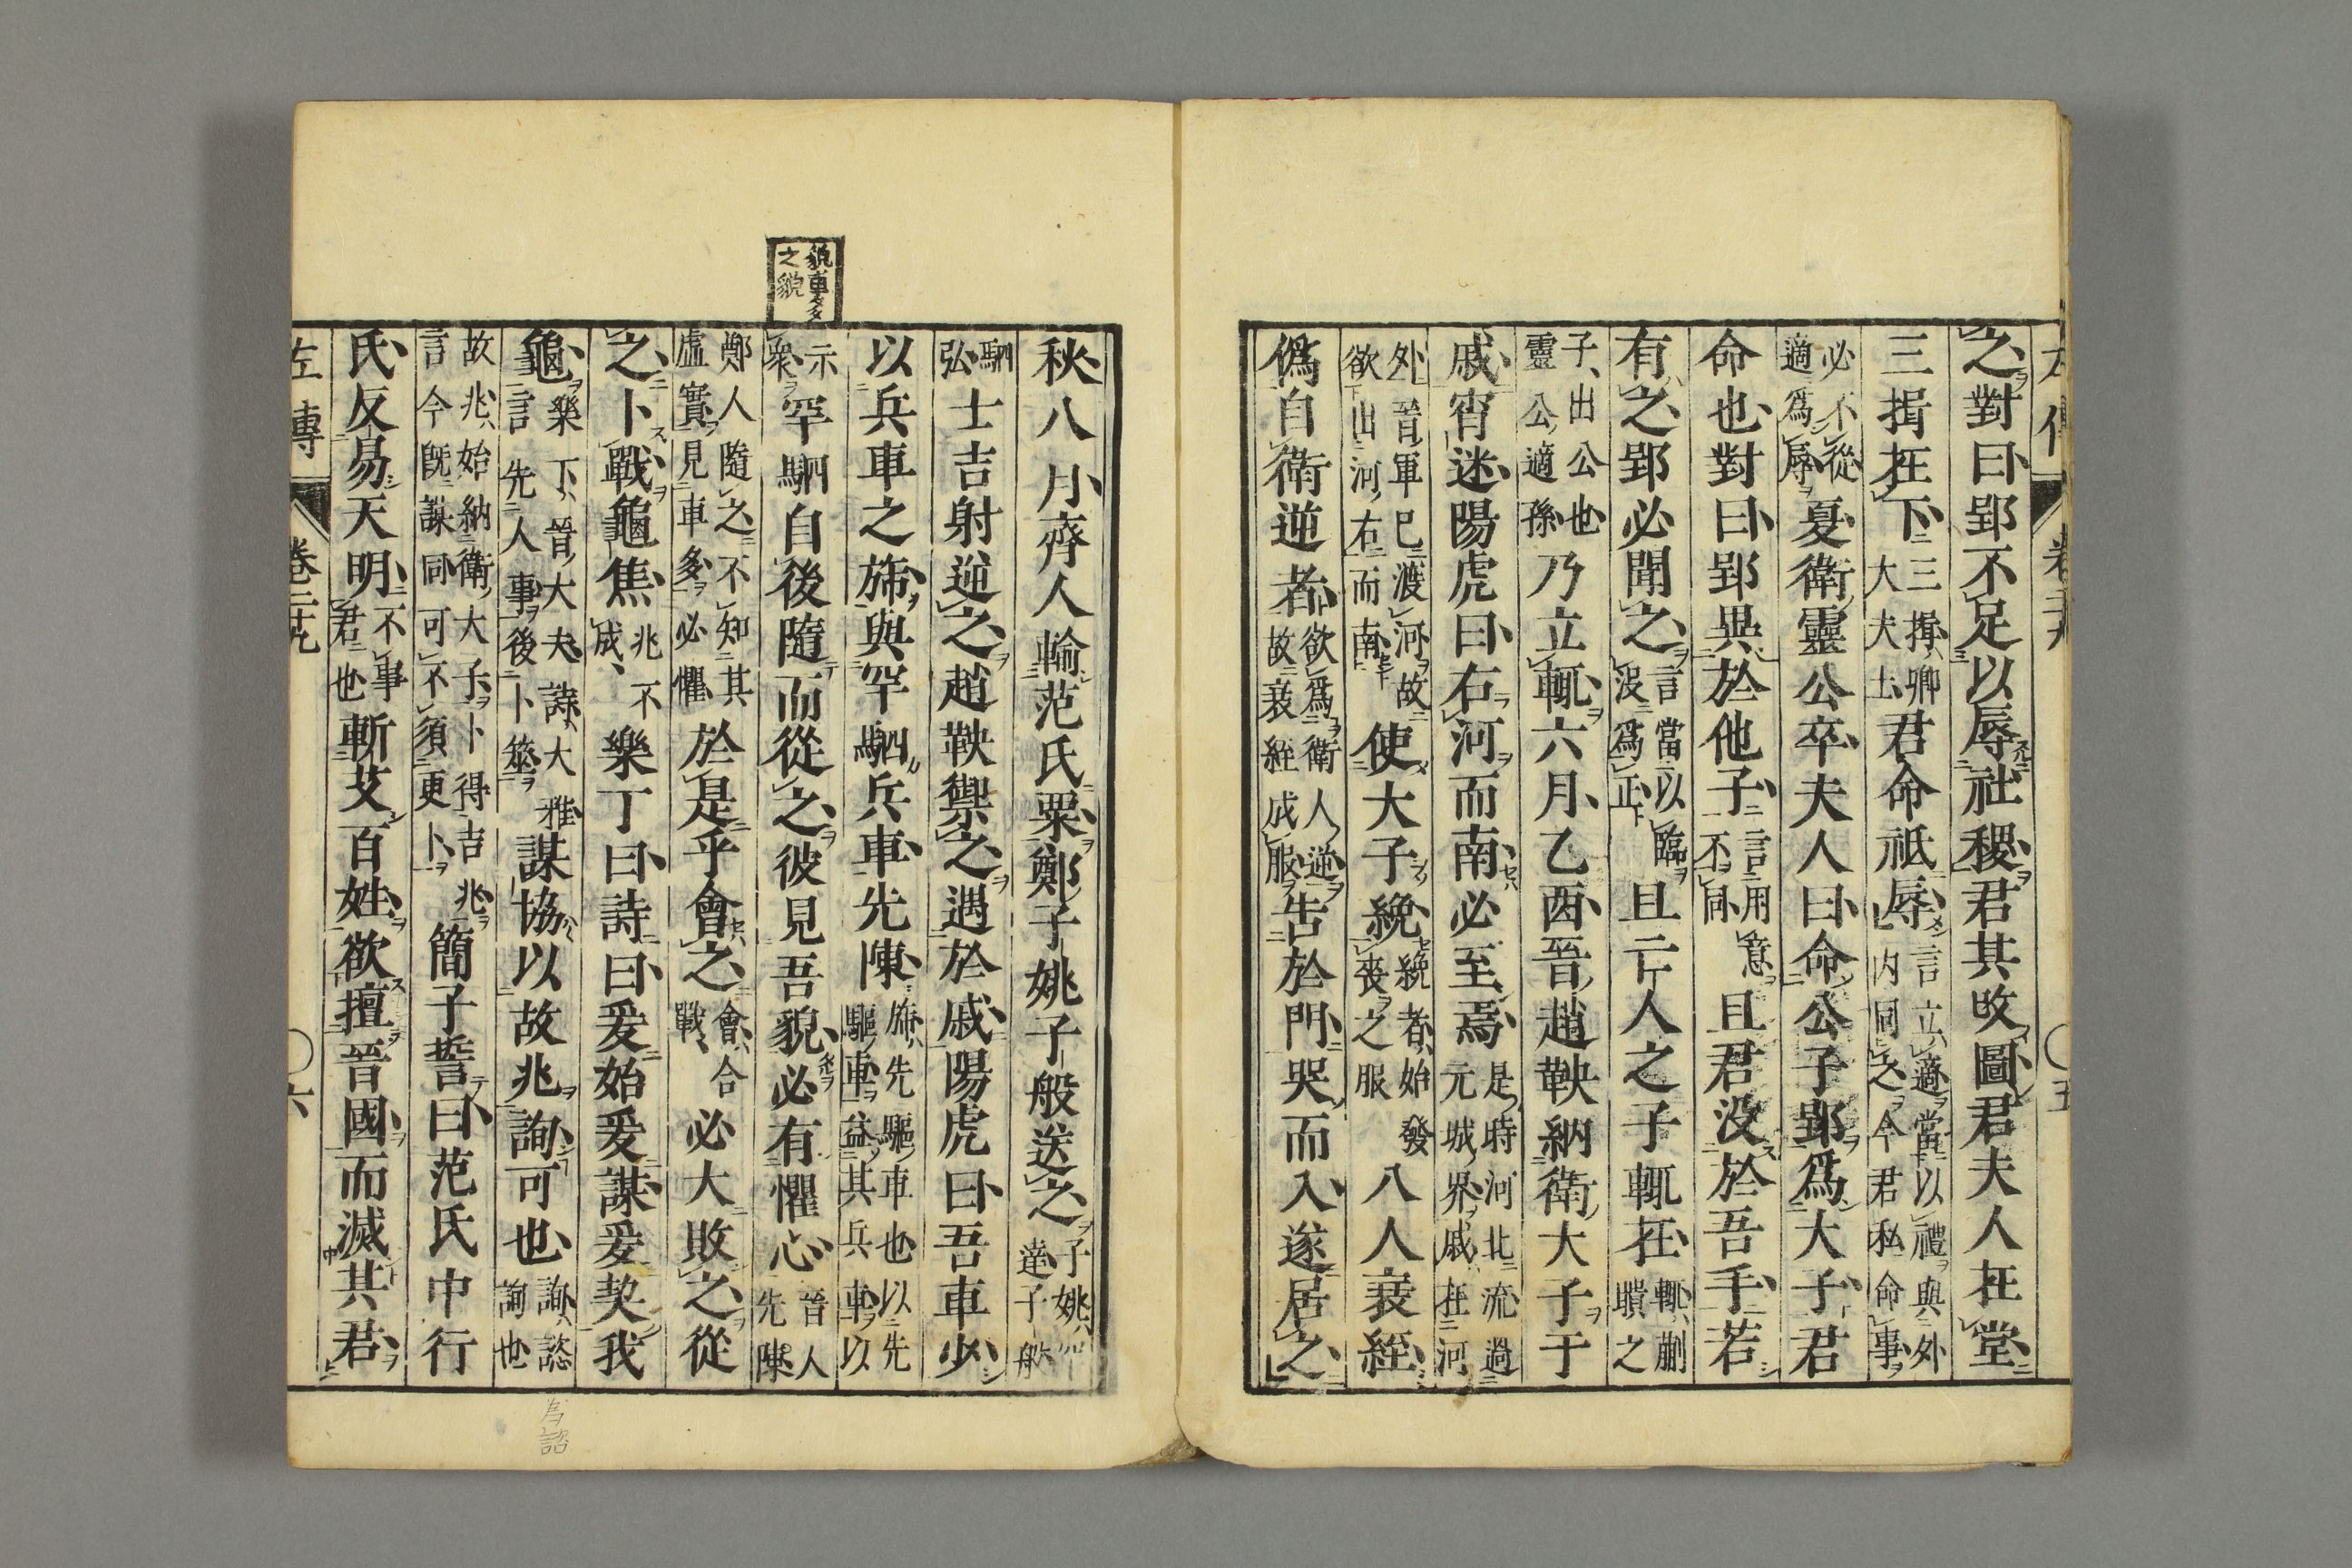 之對曰郢不足以辱社稷君其改圖君夫人在堂
三揖在下三揖卿大夫士君命祗辱言立適當以禮與外內同之今君私命事
必不從適爲辱夏衛靈公卒夫人曰命公子郢爲大子君
命也對曰郢異於他子言用意不同且君没於吾手若
有之郢必聞之言當以臨没爲正且亡人之子輒在輒蒯聵之
子出公也靈公適孫乃立輒六月乙酉晉趙鞅納衛大子于
戚宵迷陽虎曰右河而南必至焉是時河北流過元城界戚在河
外晉軍已渡河故欲出河右而南使大子絻絻者始發喪之服八人衰絰
偽自衛逆者欲爲衛人逆故衰絰成服告於門哭而入遂居之
秋八月齊人輸范氏粟鄭子姚子般送之子姚達子般
駟弘士吉射逆之趙鞅禦之遇於戚陽虎曰吾車少
以兵車之旆與罕駟兵車先陳旆先驅車也以先驅車益其兵車以
示衆罕駟自後隨而從之彼見吾貌必有懼心晉人先陳
鄭人隨之不知其虛實見車多必懼於是乎會之會合戰必大敗之從
之卜戰龜焦兆不成樂丁曰詩曰爰始爰謀爰契我
龜樂丁晉大夫詩大雅言先人事後卜筮謀協以故兆詢可也詢諮詢也
故兆始納衛大子卜得吉兆言今旣謀同可不須更卜簡子誓曰范氏中行
氏反易天明不事君也斬艾百姓欲擅晉國而滅其君
左傳 卷二十九 〇六
貌車多之貌